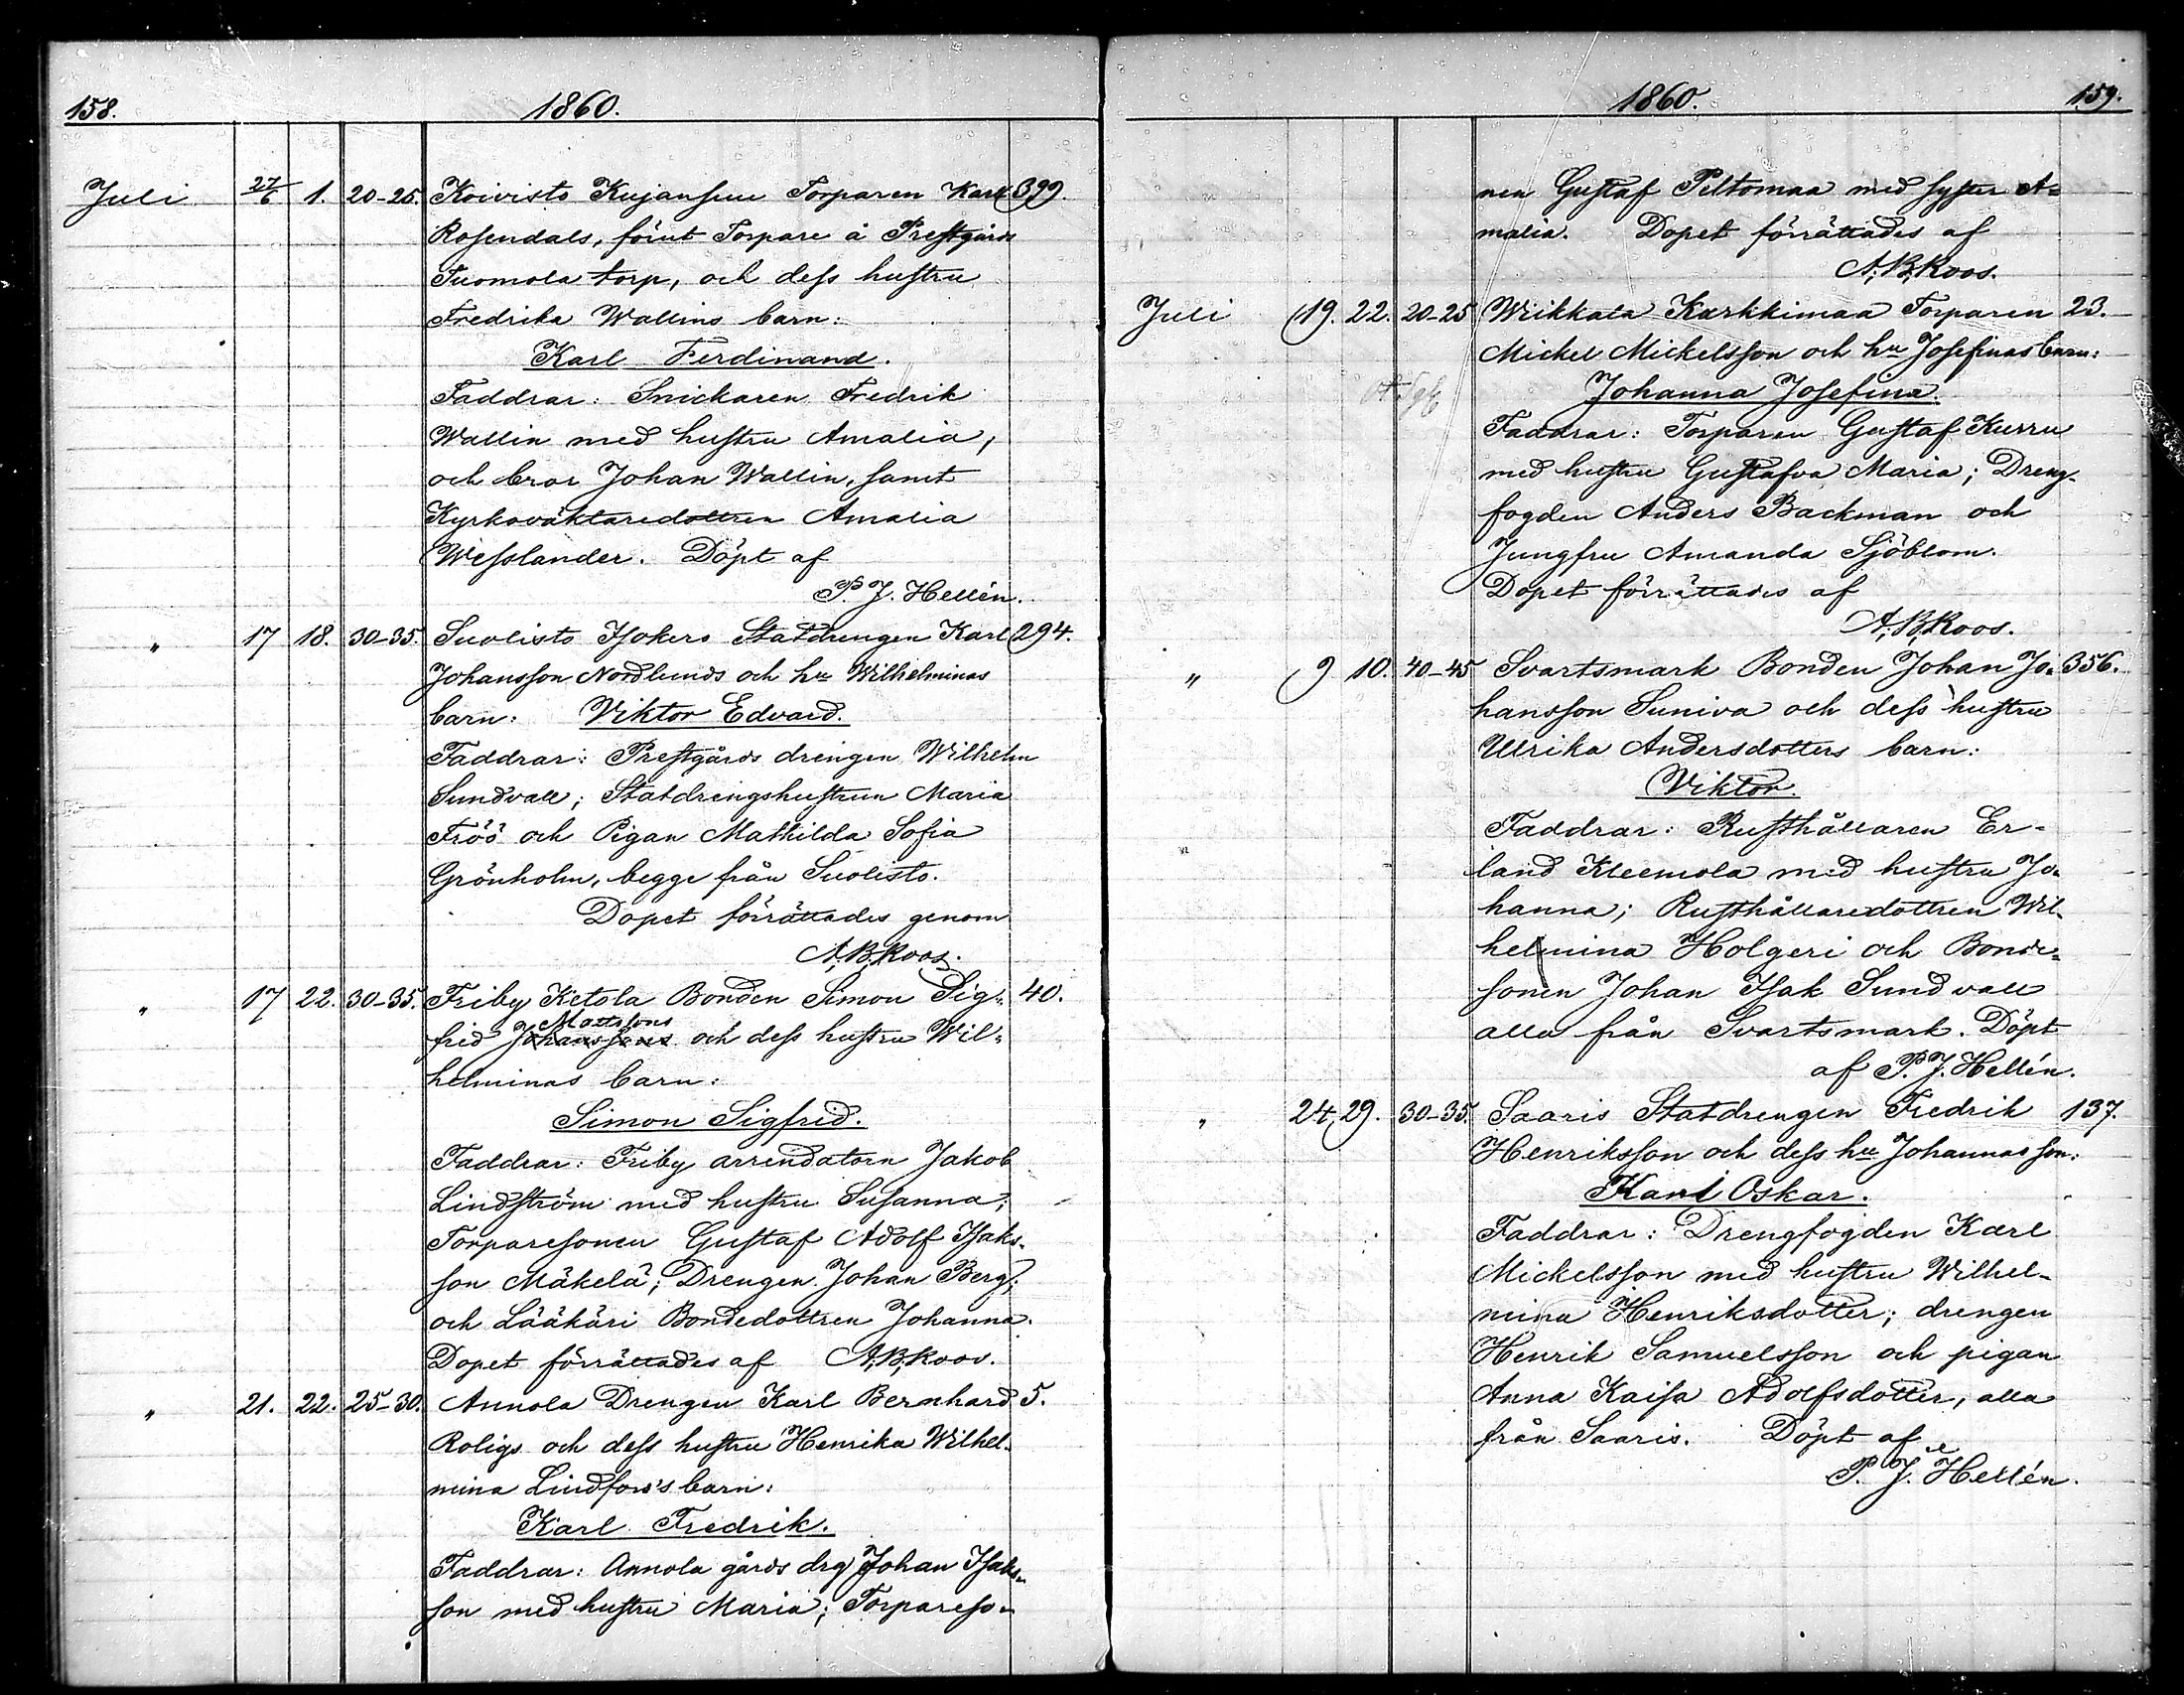 158. 1860.
Juli 27/6 1. 20-25. Koivisto Kujansuu Torparen Karl 399.
Rosendals, förut Torpare å Prestgårds
Tuomola torp, och dess hustru
Fredrika Wallins barn:
Karl Ferdinand.
Faddrar: Snickaren Fredrik
Wallin med hustru Amalia,
och bror Johan Wallin, samt
Kyrkoväktaredottren Amalia
Wesslander. Döpt af
P. J. Hellén.
" 17 18. 30-35. Suolisto Isokero Statdrengen Karl 294.
Johansson Nordlunds och hu Wilhelminas
barn: Viktor Edvard.
Faddrar: Prestgårds drengen Wilhelm
Sundvall; Statdrengshustrun Maria
Fröö och Pigan Mathilda Sofia
Grönholm, begge från Suolisto.
Dopet förrättades genom
A. B. Roos.
" 17 22. 30-35. Friby Ketola Bonden Simon Sig- 40.
Mattssons
frid Johanssons och dess hustru Wil-
helminas barn:
Simon Sigfrid.
Faddrar: Friby arrendatorn Jakob
Lindström med hustru Susanna;
Torparesonen Gustaf Adolf Isaks-
son Mäkelä; Drengen Johan Berg;
och Lääkäri Bondedottren Johanna.
Dopet förrättades af A. B. Roos.
" 21. 22. 25-30. Annola Drengen Karl Bernhard 5.
Roligs och dess hustru Henrika Wilhel-
mina Lindfors's barn:
Karl Fredrik.
Faddrar: Annola gårds drg Johan Isaks-
son med hustru Maria; Torpareso-
1860. 159.
nen Gustaf Peltomaa med syster A-
malia. Dopet förrättades af
A. B. Roos.
Juli 19. 22. 20-25 Wiikkala Karkkimaa Torparen 23.
Mickel Mickelsson och hu Josefinas barn:
Johanna Josefina.
Faddrar: Torparen Gustaf Kurru
med hustru Gustafva Maria; Dreng-
fogden Anders Backman och
Jungfru Amanda Sjöblom.
Dopet förrättades af
A. B. Roos.
" 9 10. 40-45 Svartsmark Bonden Johan Jo- 356.
hansson Suniva och dess hustru
Ulrika Andersdotters barn:
Viktor.
Faddrar: Rusthållaren Er-
land Kleemola med hustru Jo-
hanna; Rusthållaredottren Wil-
helmina Holgeri och Bonde-
sonen Johan Isak Sundvall
alla från Svartsmark. Döpt
af P. J. Hellén.
" 24. 29. 30-35. Saaris Statdrengen Fredrik 137.
Henriksson och dess hu Johannas son:
Karl Oskar.
Faddrar: Drengfogden Karl
Mickelsson med hustru Wilhel-
mina Henriksdotter; drengen
Henrik Samuelsson och pigan
Anna Kaisa Adolfsdotter, alla
från Saaris. Döpt af
P. J. Hellén.